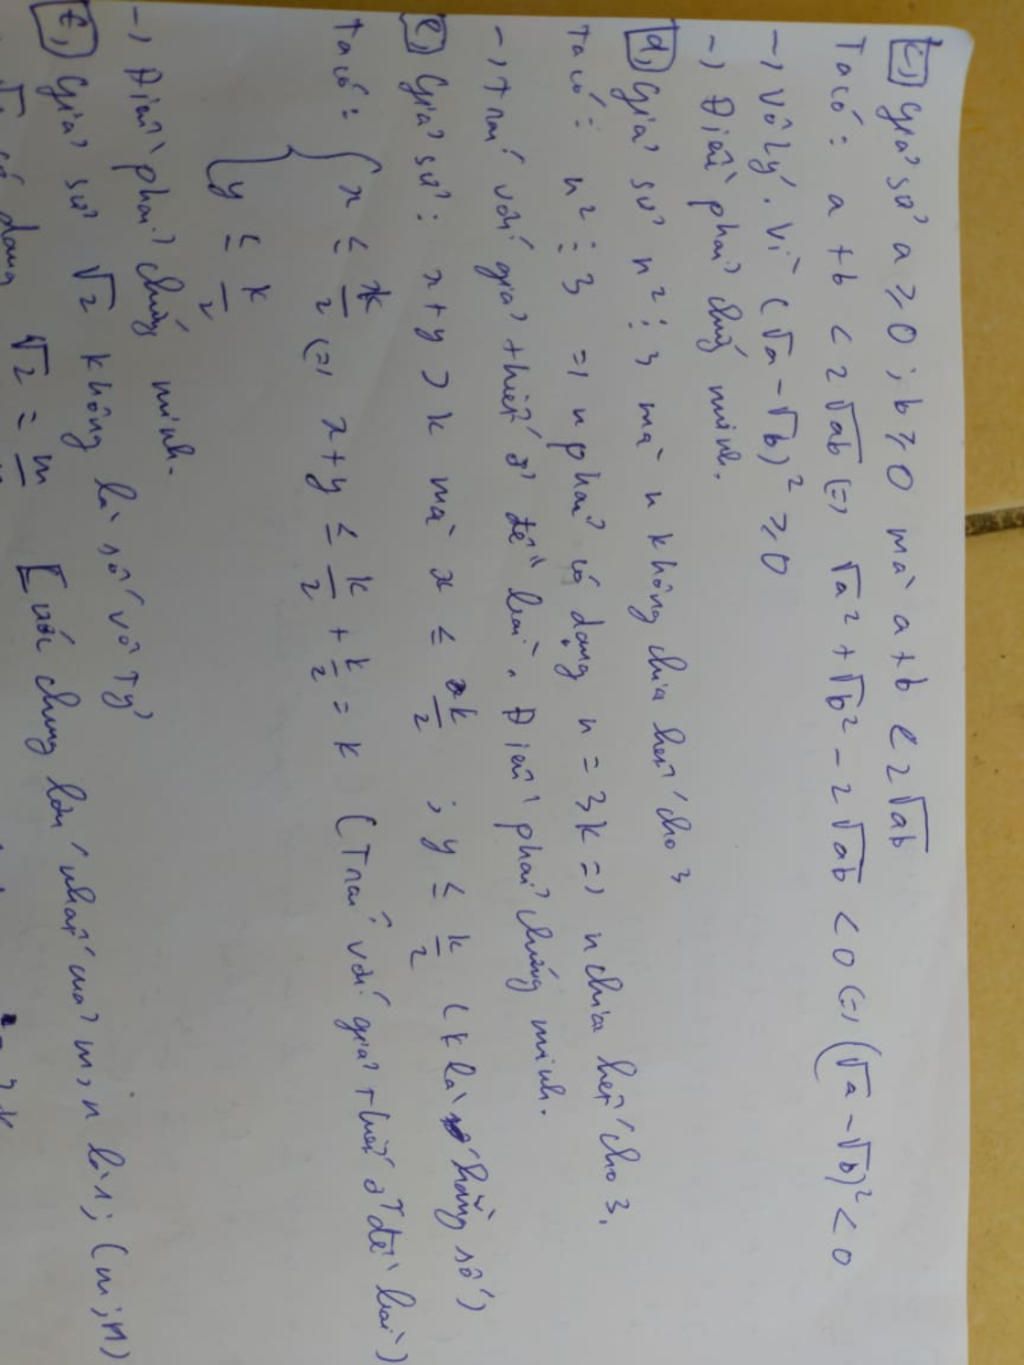 c, Giả sử a ≥ 0 ; b ≥ 0 mà a + b < 2√ab
Ta có : a + b < 2√ab (=) √a² + √b² - 2√ab < 0 (=) (√a - √b)² < 0
→ vô lý. Vì (√a - √b)² ≥ 0
→ Điều phải chứng minh.
d, Giả sử n² ⋮ 3 mà n không chia hết cho 3
Ta có : n² ⋮ 3 => n phải có dạng n = 3k => n chia hết cho 3.
→ Trái với giả thiết ở đề bài. Điều phải chứng minh.
e, Giả sử : x + y > k mà x ≤ k/2 ; y ≤ k/2 (k là hằng số)
Ta có : { x ≤ k/2 (=) x + y ≤ k/2 + k/2 = k (Trái với giả thiết ở đề bài)
y ≤ k/2
→ Điều phải chứng minh.
f, Giả sử √2 không là số vô tỷ
có dạng √2 = m [ước chung lớn nhất của m, n là 1; (m; n)